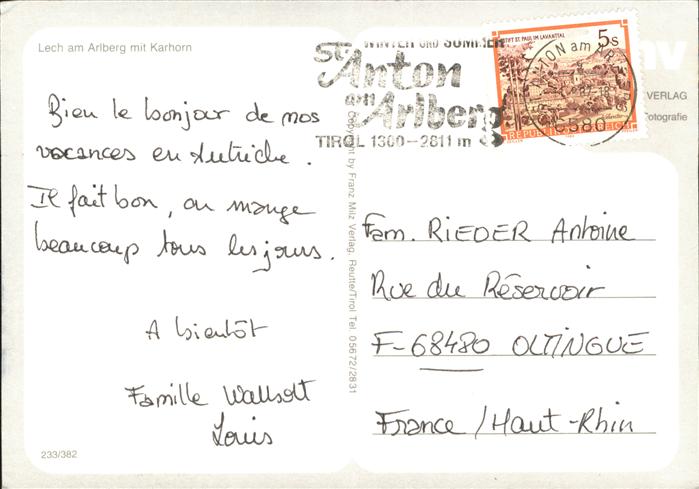 Lech am Arlberg mit Karhorn
Bien le bonjour de nos
vacances en Autriche.
Il fait bon, on mange
beaucoup tous les jours.
A bientôt
Famille Wallsolt
Louis
233/382
Copyright by Franz Milz Verlag, Reutte/Tirol Tel. 05672/2831
WINTER UND SOMMER
St. Anton
am Arlberg
TIROL 1300-2811 m
STIFT ST. PAUL IM LAVANTTAL
5s
REPUBLIK ÖSTERREICH
ANTON am ARLBERG
6580
VERLAG
Fotografie
Fam. RIEDER Antoine
Rue du Réservoir
F-68480 OLTINGUE
France/Haut-Rhin